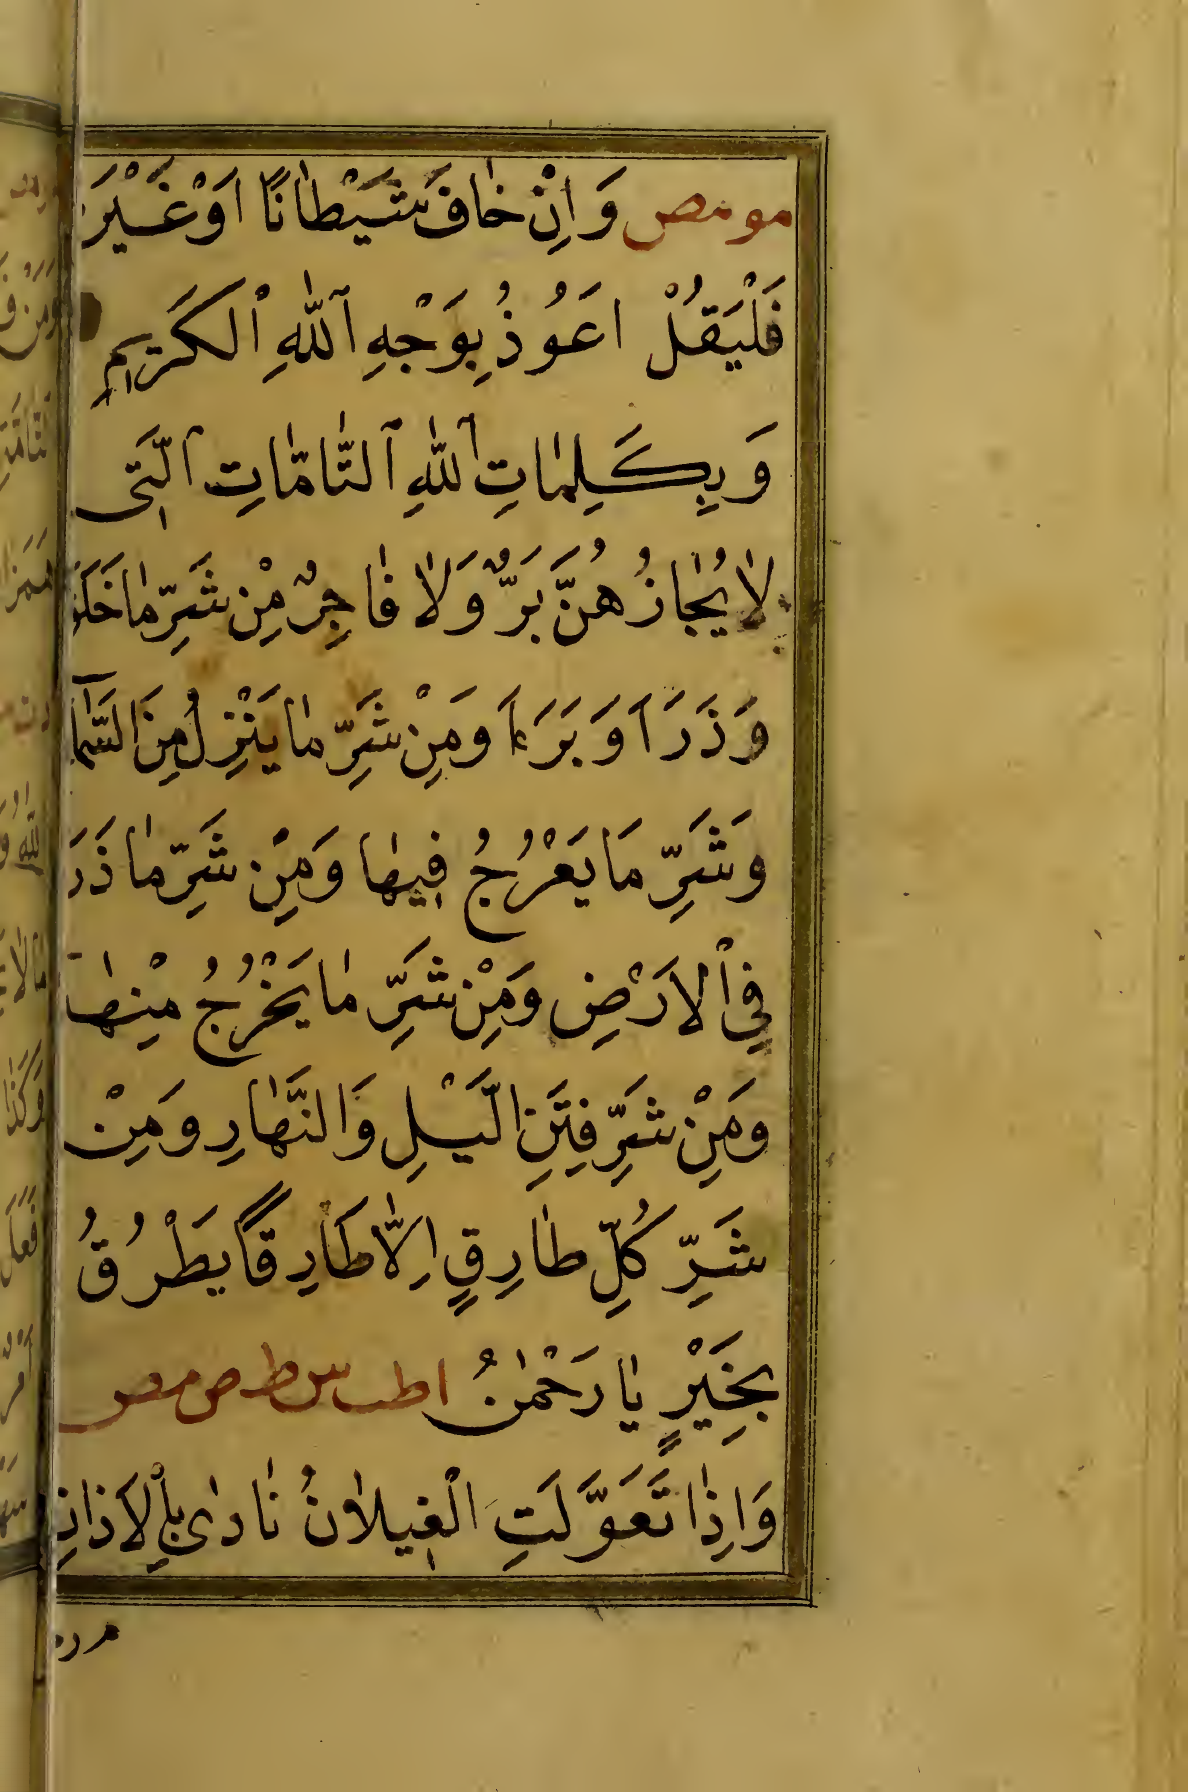 مو مص وَاِنْ خٰافَ شَيْطٰانًا اَوْ غَيْرَ
فَلْيَقُلْ اَعُوذُ بِوَجْهِ ٱللّٰهِ ٱلْكَرِيمِ
وَبِكَلِمٰاتِ ٱللّٰهِ ٱلتَّٰامّٰاتِ ٱلَّتِى
لٰا يُجٰازُهُنَّ بَرٌّ وَلٰا فٰاجِرٌ مِنْ شَرِّ مٰا خَلَقَ
وَذَرَاَ وَبَرَءَاَ وَمِنْ شَرِّ مٰا يَنْزِلُ مِنَ السَّمٰآ
وَشَرِّ مَا يَعْرُجُ فِيهٰا وَمِنْ شَرِّ مٰا ذَرَ
فِي ٱلْاَرْضِ وَمِنْ شَرِّ مٰا يَخْرُجُ مِنْهٰا
وَمِنْ شَرِّ فِتَنِ الَّيْلِ وَالنَّهٰارِ وَمِنْ
شَرِّ كُلِّ طٰارِقٍ اِلّٰا طَارِقًا يَطْرُقُ
بِخَيْرٍ يٰا رَحْمٰنُ ا طب س ط ص مص
وَاِذٰا تَغَوَّلَتِ الْغِيلٰانُ نٰادٰى بِالْاَذٰانِ